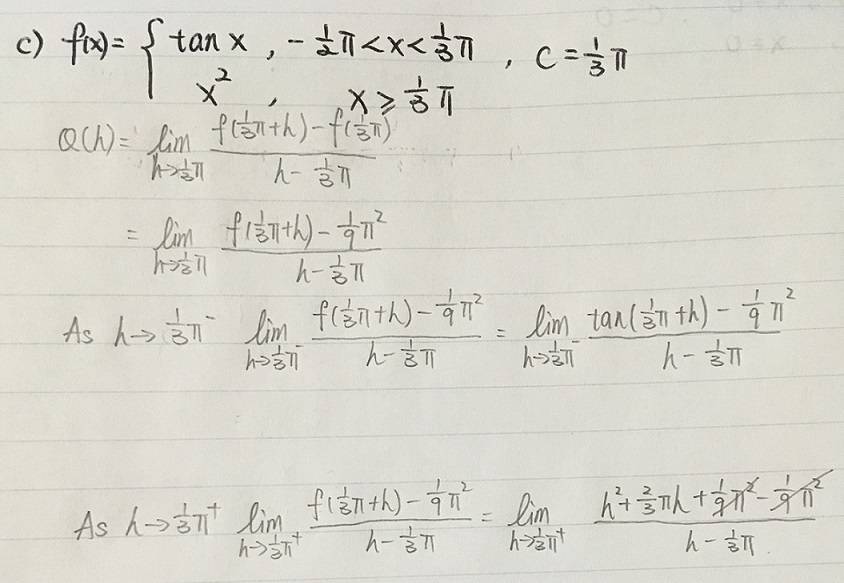 c) f(x) = { tan x , -1/2 π < x < 1/3 π , c = 1/3 π
x² , x ⩾ 1/3 π
Q(h) = lim h→1/3π (f(1/3π+h) - f(1/3π)) / (h - 1/3π)
= lim h→1/3π (f(1/3π+h) - 1/9π²) / (h - 1/3π)
As h→1/3π⁻ lim h→1/3π⁻ (f(1/3π+h) - 1/9π²) / (h - 1/3π) = lim h→1/3π⁻ (tan(1/3π+h) - 1/9π²) / (h - 1/3π)
As h→1/3π⁺ lim h→1/3π⁺ (f(1/3π+h) - 1/9π²) / (h - 1/3π) = lim h→1/3π⁺ (h² + 2/3πh + 1/9π² - 1/9π²) / (h - 1/3π)